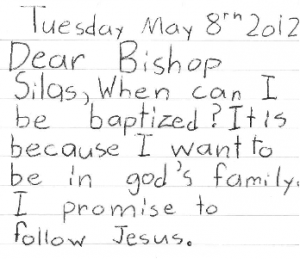 Tuesday May 8th 2012
Dear Bishop
Silas, When can I
be baptized? It is
because I want to
be in god's family.
I promise to
follow Jesus.